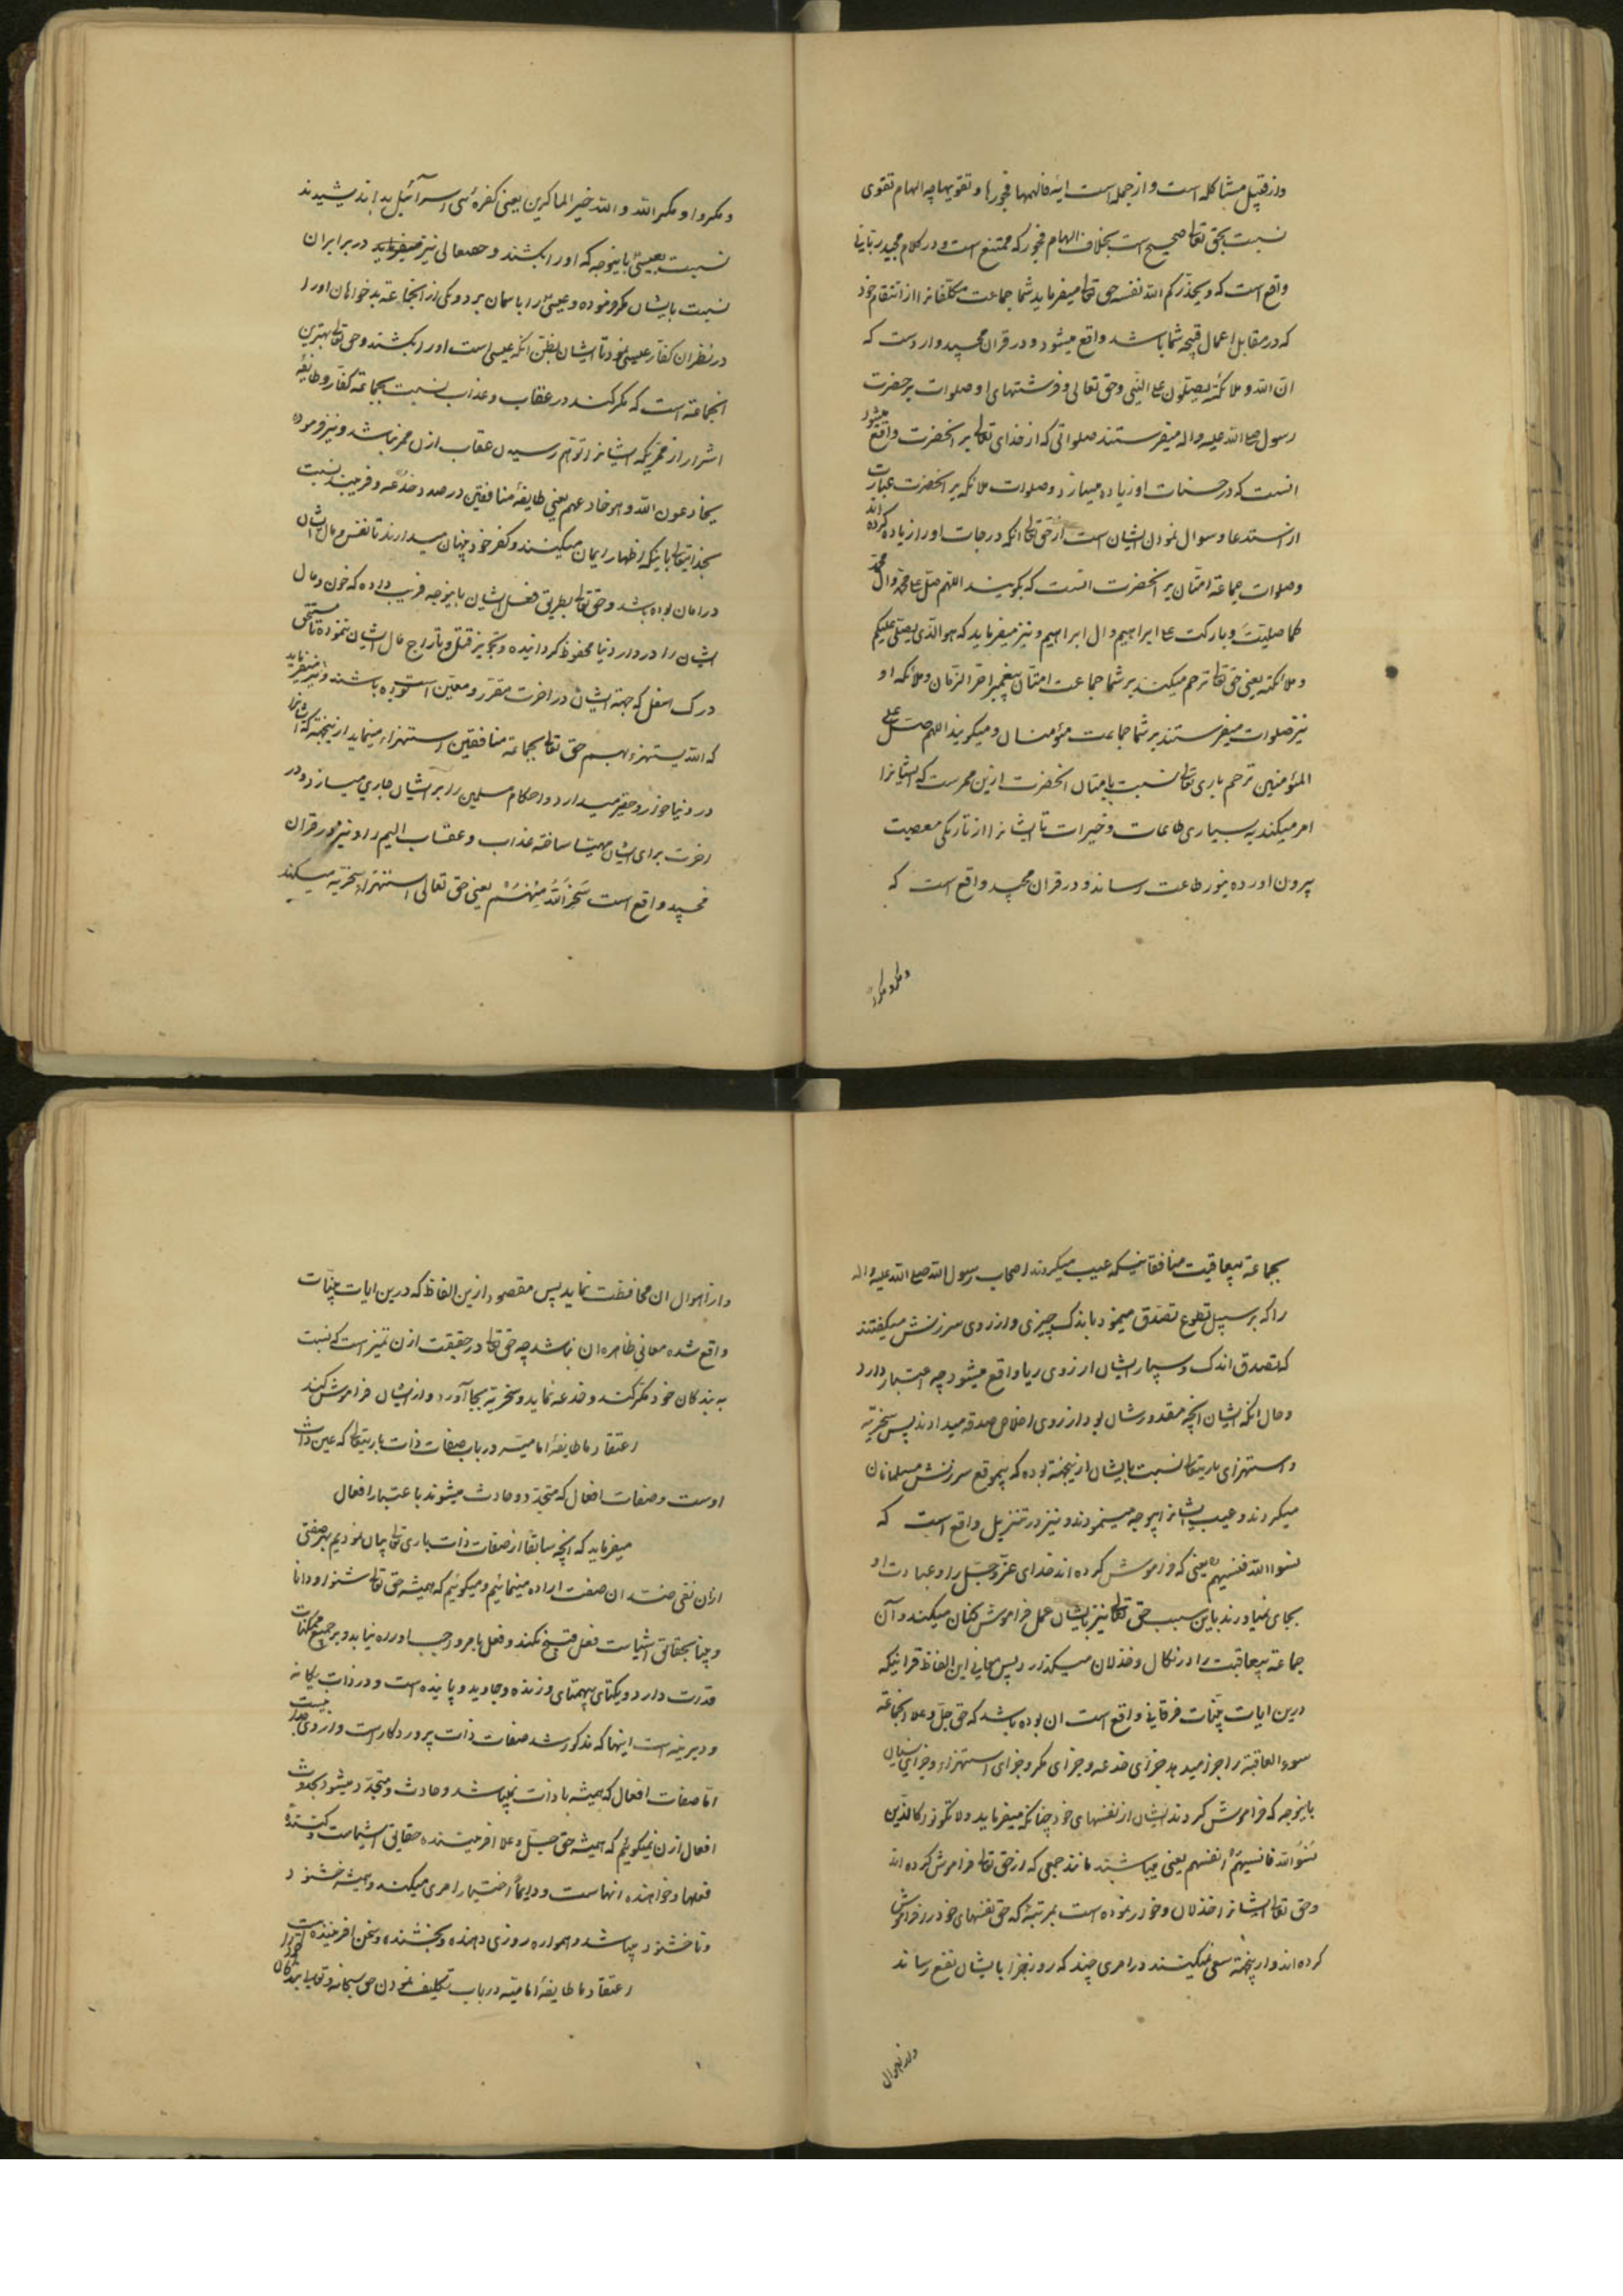 واز قبیل مشاکله است و از جمله است ایه فالهمها فجورها و تقویها چه الهام تقوی
نسبت بحق تعالی صحیح است بخلاف الهام فجور که ممتنع است و در کلام مجید ربانی
واقع است که و یحذرکم الله نفسه حق تعالی میفرماید شما جماعت مکلفانرا از انتقام خود
که در مقابل اعمال قبیحه شما باشد واقع میشود و در قران مجید وارد است که
ان الله و ملائکته یصلون علی النبی و حق تعالی و فرشتهای او صلوات بر حضرت
رسول صلی الله علیه واله میفرستند صلواتی که از خدای تعالی بر انحضرت واقع میشود
انست که در حسنات او زیاده میسازد و صلوات ملائکه بر انحضرت عبارت
از استدعا و سوال نمودن ایشان است از حق تعالی انکه درجات او را زیاده کرداند
و صلوات جماعة امتان بر انحضرت انست که بکویند اللهم صل علی محمد وال محمد
کما صلیت و بارکت علی ابراهیم وال ابراهیم و نیز میفرماید که هو الذی یصلی علیکم
و ملائکته یعنی حق تعالی ترحم میکند بر شما جماعت امتان پیغمبر اخر الزمان و ملائکه او
نیز صلوات میفرستند بر شما جماعت مؤمنان و میکویند اللهم صل علی
المؤمنین ترحم باری تعالی نسبت بامتان انحضرت ازین ممرست که ایشانرا
امر میکند به بسیاری طاعات و خیرات تا ایشانرا از تاریکی معصیت
بیرون اورده بنور طاعت رساند و در قران مجید واقع است که
ومکروا ومکر الله
ومکروا ومکر الله والله خیر الماکرین یعنی کفره بنی اسرآئیل بد اندیشیدند
نسبت بعیسی باینوجه که او را بکشند و حقتعالی نیز میفرماید در برابر ان
نسبت بایشان مکر فرموده و عیسی را باسمان برد و یکی از انجماعة بدخواهان او را
در نظر ان کفار عیسی نمود تا ایشان بظن انکه عیسی است او را بکشتند و حق تعالی بهترین
انجماعة است که مکر کنند در عقاب و عذاب نسبت بجماعة کفار و طایفه
اشرار از ممریکه ایشانرا توهم رسیدن عقاب ازن ممر نباشد و نیز فرموده
یخادعون الله و هو خادعهم یعنی طایفهٔ منافقین درصدد خدعه و فریبند نسبت
بخدایتعالی باینکه اظهار ایمان میکنند و کفر خود پنهان میدارند تا نفس و مال ایشان
در امان بوده باشد و حق تعالی بطریق فعل ایشان باینوجه فریب داده که خون و مال
ایشان را در دار دنیا محفوظ کردانیده و تجویز قتل و تاراج مال ایشان ننموده تا مستحق
درک اسفل که جهة ایشان در اخرت مقرر و معین است بوده باشند و نیز میفرماید
که الله یستهزء بهم حق تعالی بجماعة منافقین استهزاء مینماید ازینجهة که ایشانرا
در دنیا خوار و حقیر میدارد و احکام مسلمین را بر ایشان جاری میسازد و در
اخرت برای ایشان مهیا ساخته عذاب و عقاب الیم را و نیز در قران
مجید واقع است سخر الله منهم یعنی حق تعالی استهزاء و سخریه میکند
بجماعة بیعاقبت منافقانیکه عیب میکردند اصحاب رسول الله صلی الله علیه واله
را که بر سبیل تطوع تصدق مینمود باندک چیزی و از روی سرزنش میکفتند
که تصدق اندک و بسیار ایشان از روی ریا واقع میشود چه اعتبار دارد
و حال انکه ایشان انچه مقدورشان بود از روی اخلاص صدقه میدادند پس سخریه
و استهزای باریتعالی نسبت بایشان ازینجهة بوده که بیموقع سرزنش مسلمانان
میکردند و عیب ایشانرا بیوجه مینمودند و نیز در تنزیل واقع است که
نسوا الله فنسیهم یعنی که فراموش کرده اند خدای عز و جل را و عبادت او
بجای نمیاورند باین سبب حق تعالی نیز بایشان عمل فراموش کنان میکند و آن
جماعة بیعاقبت را در نکال و خذلان میکذارد پس معانی این الفاظ قرانیکه
درین ایات بینات فرقانی واقع است ان بوده باشد که حق جل و علا انجماعة
سوء العاقبة را جزا میدهد جزای خدعه و جزای مکر و جزای استهزاء و جزای نسیان
باینوجه که فراموش کردند ایشان از نفسهای خود چنانکه میفرماید و لا تکونوا کالذین
نسوا الله فانسیهم انفسهم یعنی مباشید مانند جمعی که از حق تعالی فراموش کرده اند
و حق تعالی ایشانرا خذلان و خوار نموده است بمرتبهٔ که حق نفسهای خود را فراموش
کرده اند و ازینجهة سعی نمیکنند در امری چند که روز جزا بایشان نفع رساند
و از اهوال
و از اهوال ان محافظت نماید پس مقصود ازین الفاظ که درین ایات بینات
واقع شده معانی ظاهره ان نباشد چه حق تعالی در حقیقت ازن تمیز است که نسبت
به بندکان خود مکر کند و خدعه نماید و سخریه بجا آورد و از ایشان فراموش کند
اعتقاد ما طایفهٔ امامیه در باب صفات ذات باریتعالی که عین ذات
اوست و صفات افعال که متجدد و حادث میشوند باعتبار افعال
میفرماید که انچه سابقا از صفات ذات باری تعالی بیان نمودیم بهر صفتی
ازان نفی ضد ان صفت اراده مینمائیم و میکوئیم که همیشه حق تعالی شنوا و دانا
و بینا بحقایق اشیاست فعل قبیح نکند و فعل بامر واجب اورده نیابد و بر جمیع ممکنات
قدرت دارد و یکتای بیهمتای و زنده و جاوید و پاینده است و در ذات یکانه
و دیرینه است اینها که مذکور شد صفات ذات پروردکارست و از وی جدا نیست
اما صفات افعال که همیشه با ذات نمیباشد و حادث و متجدد میشود بحدوث
افعال ازن نمیکوئیم که همیشه حق جل و علا افریننده حقایق اشیاست و کننده
فعلها و خواهنده انهاست و دایما اختیار امری میکند و همیشه خشنود
و ناخشنود میباشد و همواره روزی دهنده و بخشنده و سخن افریننده است
اعتقاد ما طایفهٔ امامیه در باب تکلیف نمودن حق سبحانه و تعالی بندکان خود را